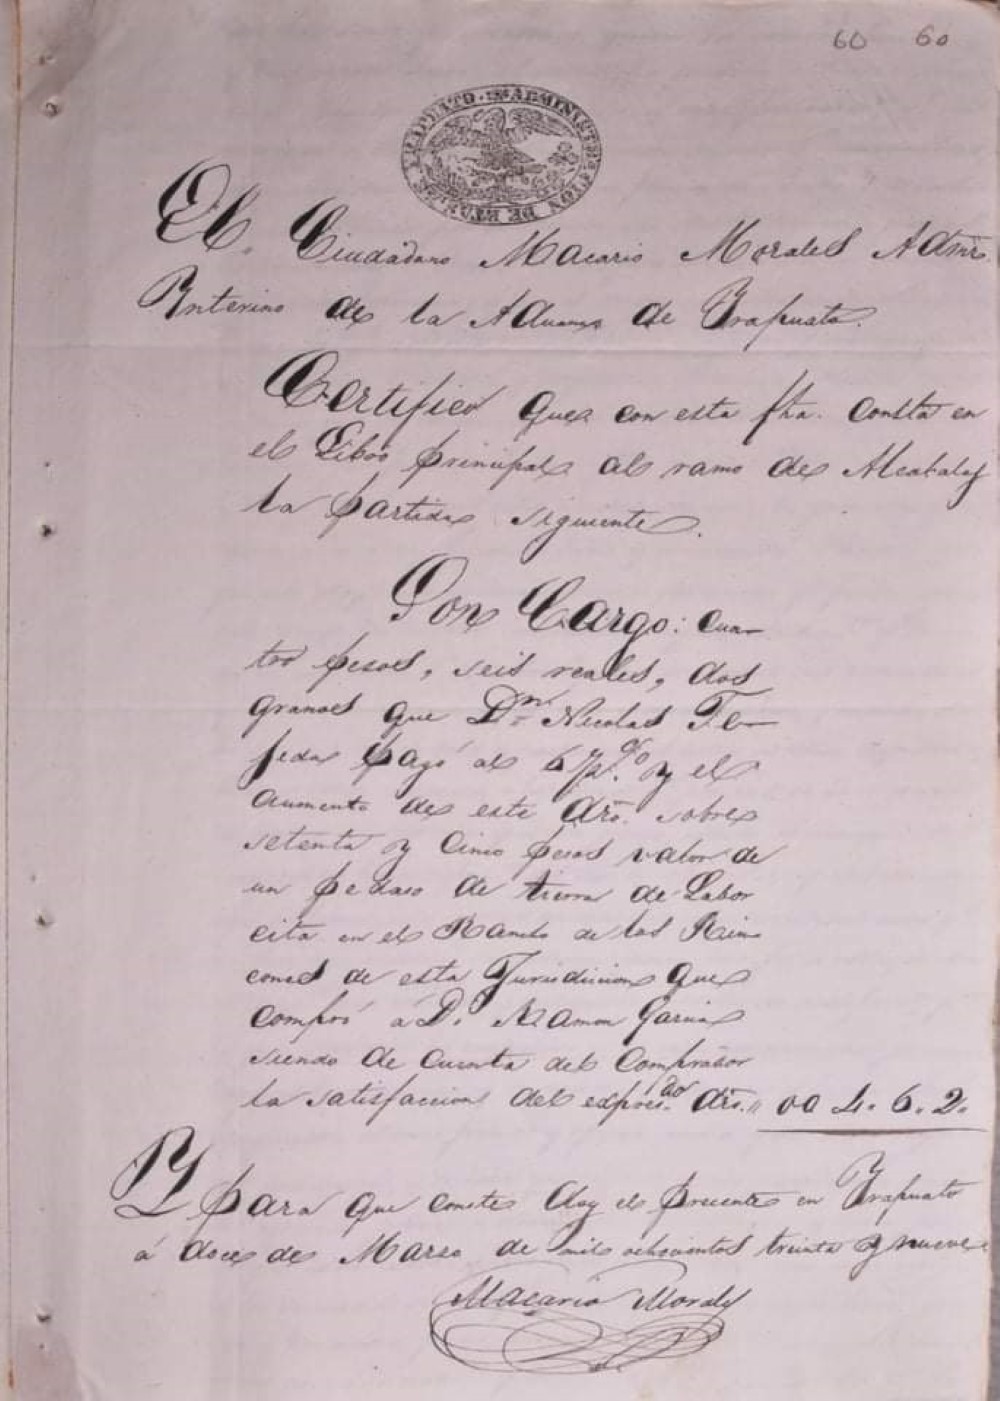 60 60
ADMINISTRACION DE RENTAS IRAPUATO
El Ciudadano Macario Morales Admor.
Ynterino de la Aduana de Yrapuato.
Certifico que con esta fha. consta en
el Libro principal al ramo de Alcabalas
la partida siguiente.
Son Cargo: cua-
tro pesos, seis reales, dos
granos que Dn. Nicolas
pagó al 6 p.% y el
aumento de este dro. sobre
setenta y cinco pesos valor de
un pedaso de tierra de Labor
cita en el Rancho de los Rin
cones de esta Jurisdicion que
compró á D. Ramon Garcia
siendo de cuenta del comprador
la satisfaccion del expresado dro. " 00 4. 6. 2.
Y para que conste doy el presente en Yrapuato
á doce de Marso de mil ochocientos treinta y nueve
Macario Morales